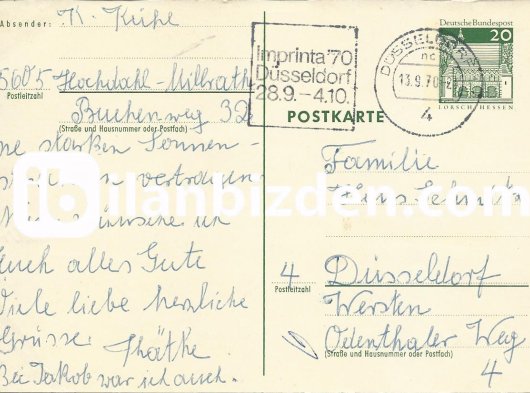 Absender: K. Kühe
5605 Hochdahl-Millrath
Postleitzahl
Buchenweg 32
(Straße und Hausnummer oder Postfach)
ne starken Sonnen-
vertragen
Euch alles Gute
Viele liebe herzliche
Grüsse Kätke
Bei Jakob war ich auch.
imprinta '70
Düsseldorf
28.9. – 4.10.
DÜSSELDORF
13.9.70
4
Deutsche Bundespost
20
LORSCH/HESSEN
POSTKARTE
Familie
Hans Schmitz
4 Düsseldorf
Postleitzahl
Wersten
Odenthaler Weg
(Straße und Hausnummer oder Postfach)
4
ilanbizden.com